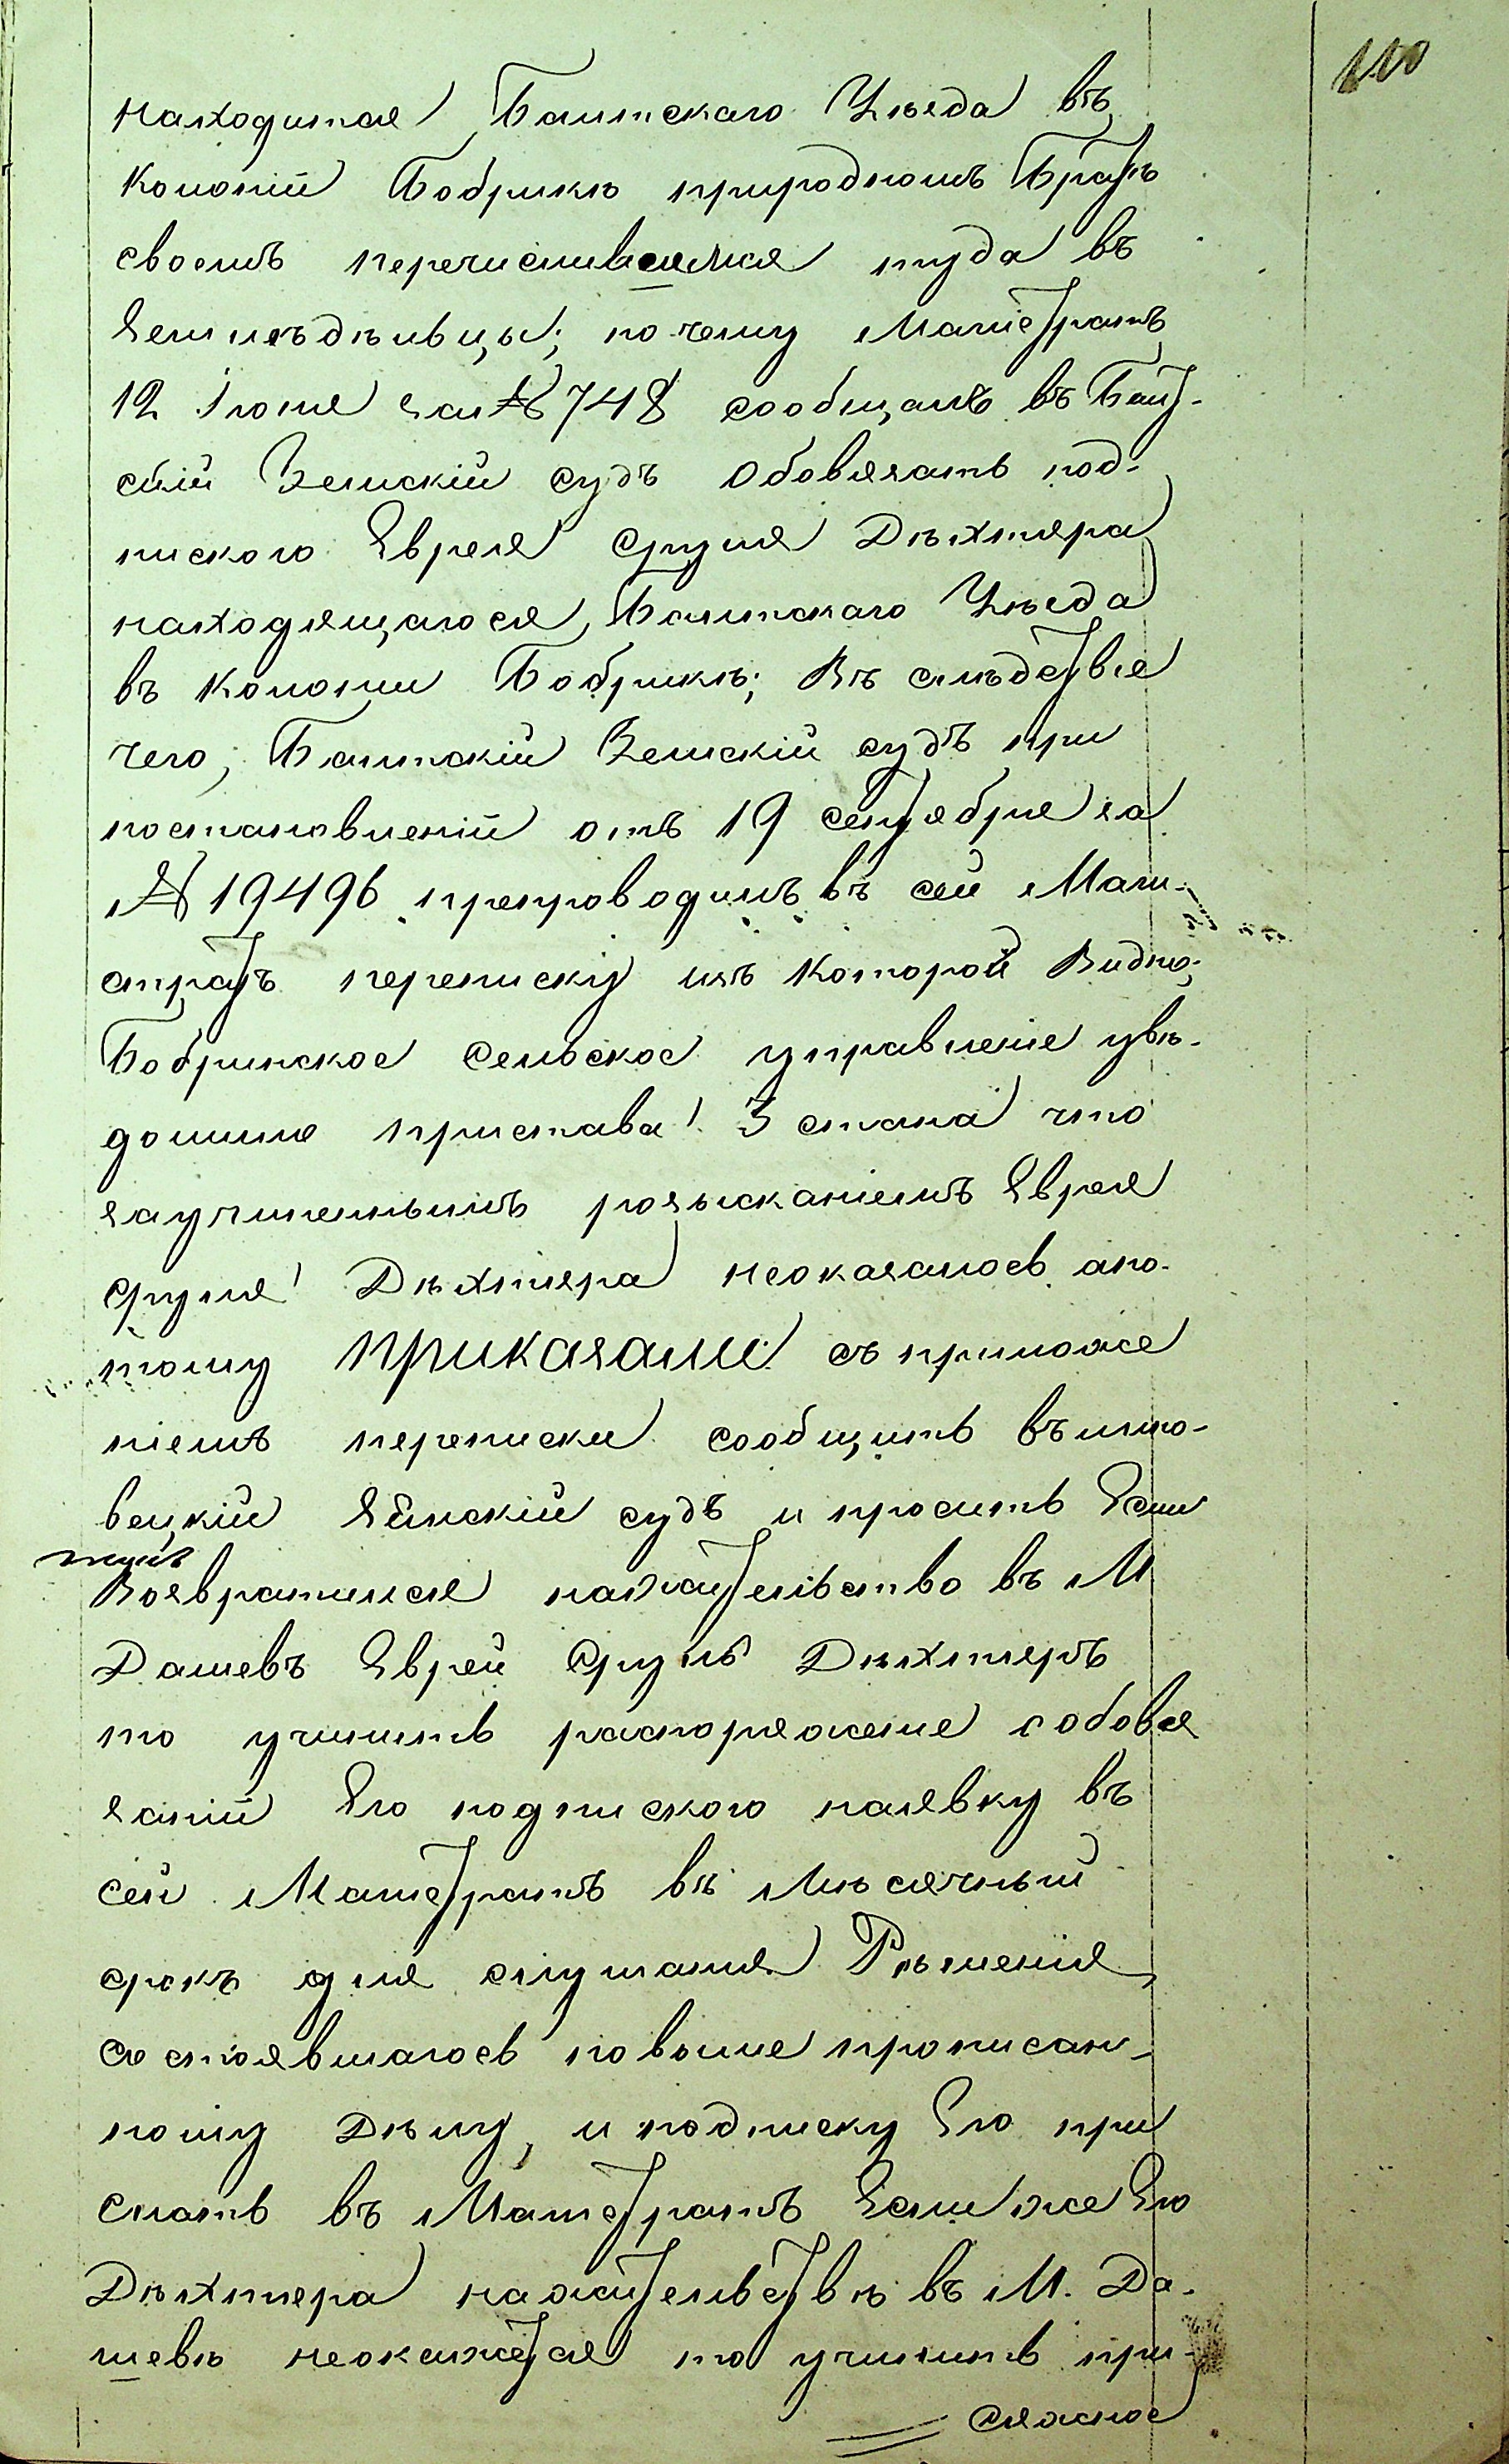 110
находится Балтскаго Уѣзда въ
Колоніи Бобрикѣ природномъ Братѣ
своемъ перечислившемся туда въ
земледѣльцы; по чему Магистратъ
12 Іюня за № 748 сообщалъ въ Балт-
скій Земскій судъ Обовязать под-
пискою Еврея Сруля Дѣхтяра
находящагося Балтскаго Уѣзда
въ Колоніи Бобрикѣ; Въ слѣдствіе
чего, Балтскій Земскій судъ при
постановленіи отъ 19 сентября за
№ 19496 препроводилъ въ сей Маги-
стратъ переписку изъ Которой Видно;
Бобринское Сельское управленіе увѣ-
домило пристава 3 стана что
заучиненнымъ розысканіемъ Еврея
Сруля Дѣхтяра неоказалось апо-
тому Приказали съ приложе
ніемъ переписки сообщить въ Липо-
вецкій Земскій судъ и просить Если
Возвратился нажительство въ М
Дашевъ Еврей Сруль Дѣхтяръ
то учинить распоряженіе ообовя
заніи Его подпискою наявку въ
сей Магистратъ въ Мѣсячный
срокъ для слушанія Рѣшенія
состоявшагось повыше прописан-
ному Дѣлу, и подписку Его при
слать въ Магистратъ Если же Его
Дѣхтяра нажительствѣ въ М. Да-
шевѣ неокажется то учинить при-
сяжное